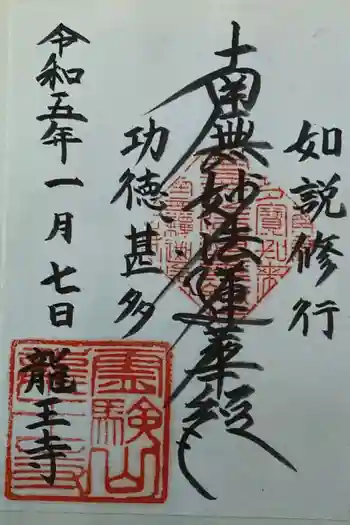 如説修行
南無妙法蓮華経
功徳甚多
令和五年一月七日
龍王寺
霊験山
龍王寺